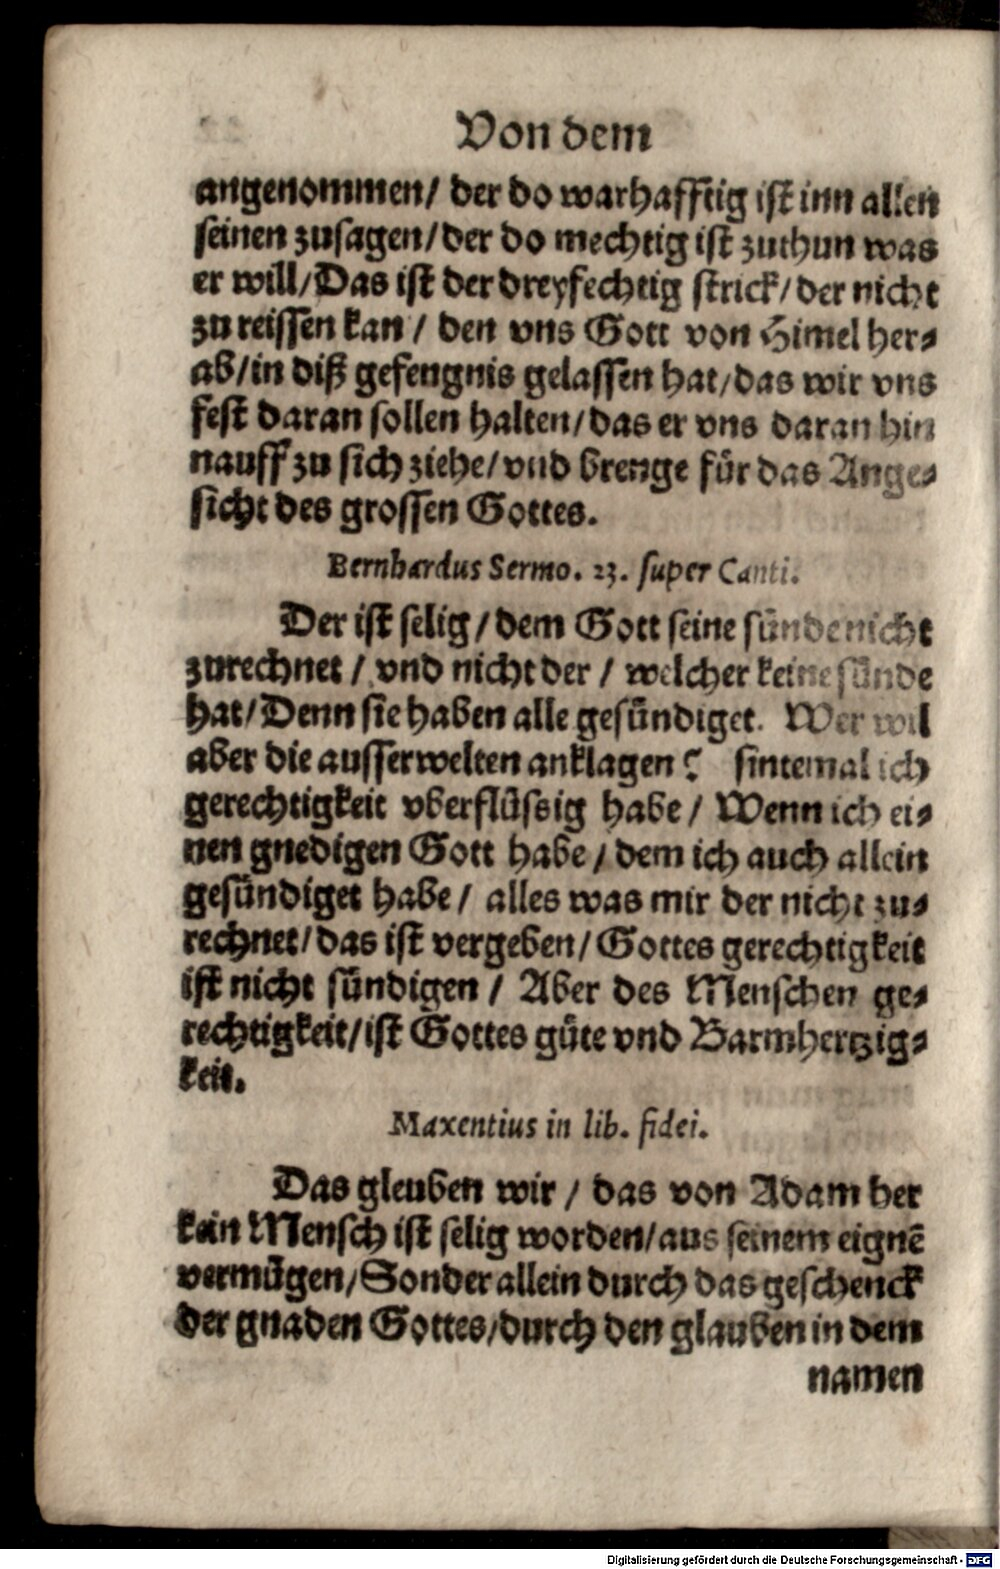 Von dem
angenommen/ der do warhafftig ist inn allen
seinen zusagen/der do mechtig ist zuthun was
er will/Das ist der dreyfechtig strick/der nicht
zu reissen kan/ den vns Gott von Himel her⸗
ab/in diß gefengnis gelassen hat/das wir vns
fest daran sollen halten/das er vns daran hin
nauff zu sich ziehe/vnd brenge für das Ange⸗
sicht des grossen Gottes.
Bernhardus Sermo. 23. super Canti.
Der ist selig/dem Gott seine sünde nicht
zurechnet/ vnd nicht der/ welcher keine sünde
hat/Denn sie haben alle gesündiget. Wer wil
aber die ausserwelten anklagen? sintemal ich
gerechtigkeit vberflüssig habe/ Wenn ich ei⸗
nen gnedigen Gott habe/dem ich auch allein
gesündiget habe/ alles was mir der nicht zu⸗
rechnet/das ist vergeben/Gottes gerechtigkeit
ist nicht sündigen/ Aber des Menschen ge⸗
rechtigkeit/ist Gottes güte vnd Barmhertzig⸗
keit.
Maxentius in lib. fidei.
Das gleuben wir/ das von Adam her
kein Mensch ist selig worden/aus seinem eignē
vermügen/Sonder allein durch das geschenck
der gnaden Gottes/durch den glauben in dem
namen
Digitalisierung gefördert durch die Deutsche Forschungsgemeinschaft - DFG